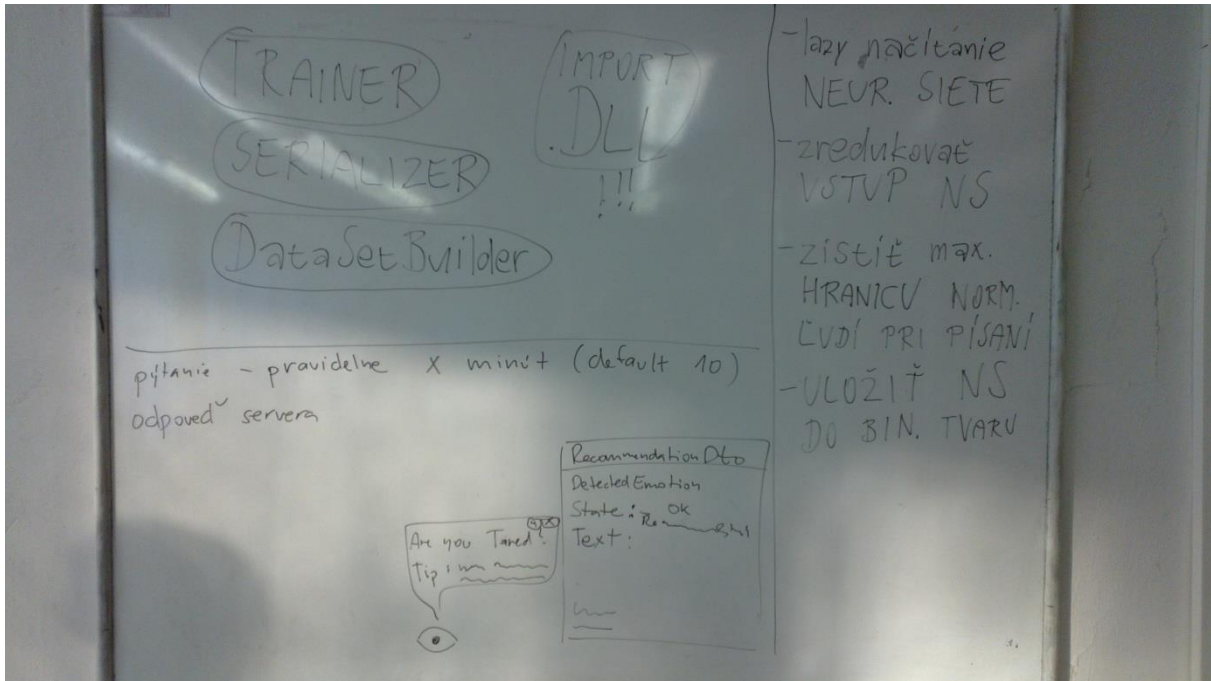 TRAINER
SERIALIZER
DataSet.Builder
IMPORT
.DLL
!!!
-lazy načítanie
NEUR. SIETE
-zredukovať
VSTUP NS
-zistiť max.
HRANICU NORM.
ĽUDÍ PRI PÍSANÍ
-ULOŽIŤ NS
DO BIN. TVARU
pýtanie - pravidelne x minút (default 10)
odpoveď servera
Are you Tared?
Tip:
RecommendationDto
DetectedEmotion
State: - OK
Text: